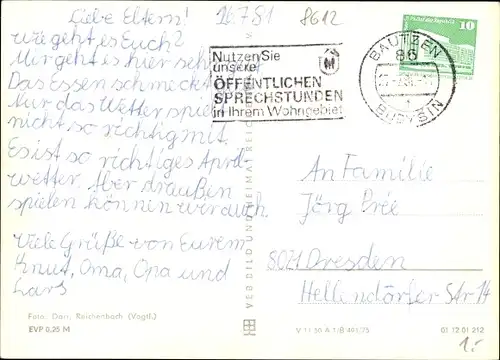 Liebe Eltern! 16.7.81 8612
wie geht es Euch?
Mir geht es hier sehr
Das Essen schmeckt
Nur das Wetter spielt
nicht so richtig mit.
Es ist so richtiges April-
wetter. Aber draußen
spielen können wir auch.
Viele Grüße von Eurem
Knut, Oma, Opa und
Lars
Foto: Darr, Reichenbach (Vogtl.)
EVP 0,25 M
VEB BILD UND HEIMAT REICHENBACH
Nutzen Sie
unsere
ÖFFENTLICHEN
SPRECHSTUNDEN
in Ihrem Wohngebiet
BAUTZEN
86
BUDYŠIN
10
An Familie
Jörg Prée
8021 Dresden
Hellendorfer Str. 14
V 11 50 A 1/B 491/75
01 12 01 212
1,-